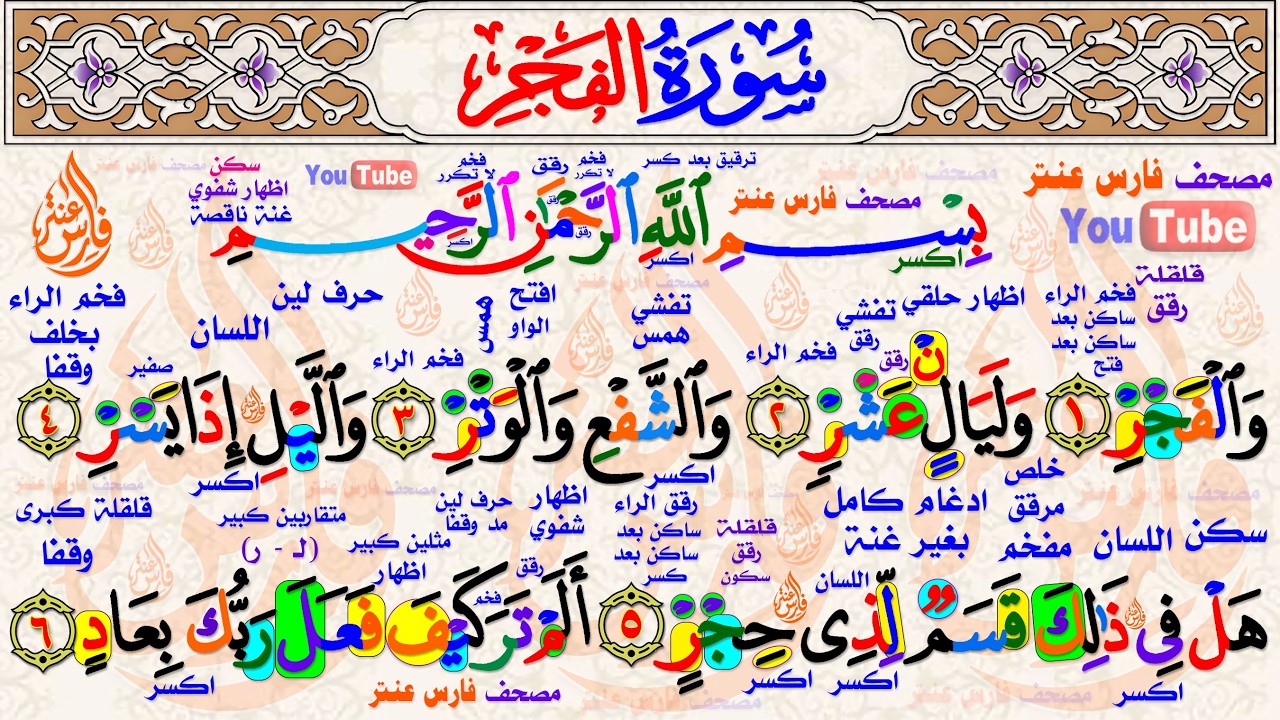 سُورَةُ الفَجْرِ
ترقيق بعد كسر فخم لا تكرر رقق فخم لا تكرر سكن اظهار شفوي غنة ناقصة
مصحف فارس عنتر
You Tube
بِسْمِ ٱللَّهِ ٱلرَّحْمَٰنِ ٱلرَّحِيمِ
مصحف فارس عنتر
You Tube
فارس عنتر
اكسر اكسر رقق رقق اكسر
قلقلة رقق
فخم الراء ساكن بعد ساكن بعد فتح
اظهار حلقي تفشي رقق رقق
فخم الراء
تفشي همس
افتح الواو
همس
فخم الراء
حرف لين
اللسان
صفير
فخم الراء بخلف وقفا
وَٱلْفَجْرِ ١ وَلَيَالٍ عَشْرٍ ٢ وَٱلشَّفْعِ وَٱلْوَتْرِ ٣ وَٱلَّيْلِ إِذَا يَسْرِ ٤
ن
اكسر اكسر
سكن اللسان
خلص مرقق مفخم
ادغام كامل بغير غنة
قلقلة رقق سكون
رقق الراء ساكن بعد ساكن بعد كسر
اللسان
اظهار شفوي
رقق
حرف لين مد وقفا
فخم
مثلين كبير
اظهار
متقاربين كبير
(لـ - ر)
قلقلة كبرى وقفا
هَلْ فِى ذَٰلِكَ قَسَمٌ لِّذِى حِجْرٍ ٥ أَلَمْ تَرَ كَيْفَ فَعَلَ رَبُّكَ بِعَادٍ ٦
اكسر اكسر اكسر اكسر
مصحف فارس عنتر